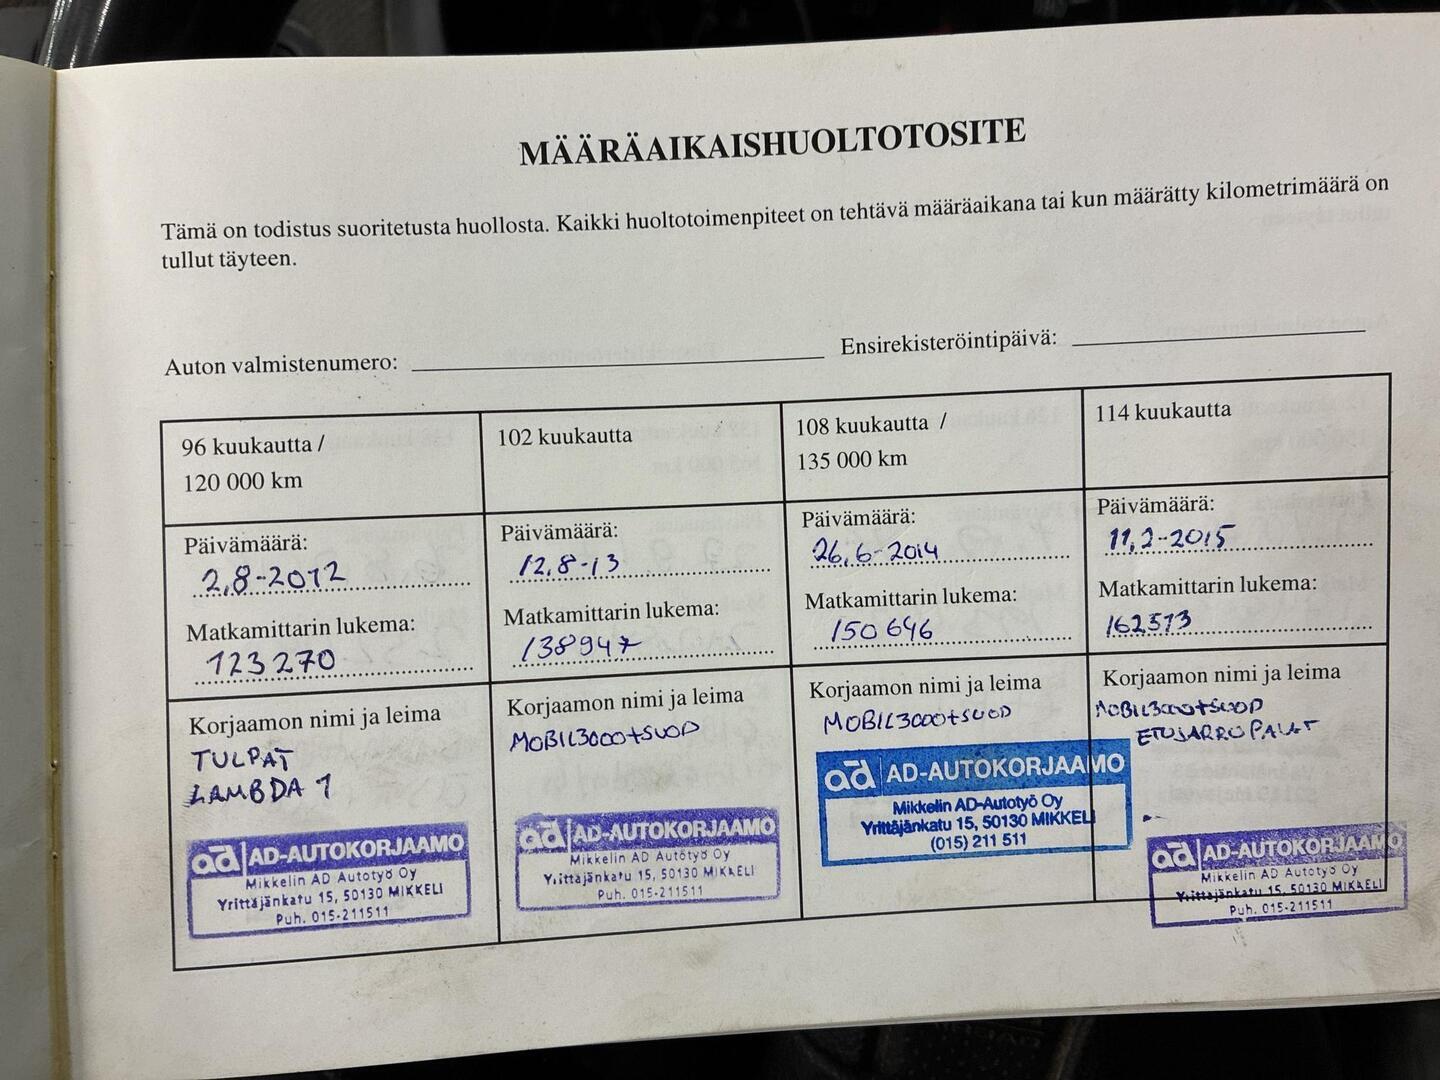 MÄÄRÄAIKAISHUOLTOTOSITE
Tämä on todistus suoritetusta huollosta. Kaikki huoltotoimenpiteet on tehtävä määräaikana tai kun määrätty kilometrimäärä on
tullut täyteen.
Auton valmistenumero:
Ensirekisteröintipäivä:
96 kuukautta /
120 000 km
Päivämäärä:
2,8-2012
Matkamittarin lukema:
123270
Korjaamon nimi ja leima
TULPAT
LAMBDA 1
ad AD-AUTOKORJAAMO
Mikkelin AD Autotyö Oy
Yrittäjänkatu 15, 50130 MIKKELI
Puh. 015-211511
102 kuukautta
Päivämäärä:
12,8-13
Matkamittarin lukema:
138947
Korjaamon nimi ja leima
MOBIL3000+SUOD
ad AD-AUTOKORJAAMO
Mikkelin AD Autotyö Oy
Yrittäjänkatu 15, 50130 MIKKELI
Puh. 015-211511
108 kuukautta /
135 000 km
Päivämäärä:
26,6-2014
Matkamittarin lukema:
150646
Korjaamon nimi ja leima
MOBIL3000+SUOD
ad AD-AUTOKORJAAMO
Mikkelin AD-Autotyö Oy
Yrittäjänkatu 15, 50130 MIKKELI
(015) 211 511
114 kuukautta
Päivämäärä:
11,2-2015
Matkamittarin lukema:
162573
Korjaamon nimi ja leima
MOBIL3000+SUOD
ETUJARRUPALAT
ad AD-AUTOKORJAAMO
Mikkelin AD Autotyö Oy
Yrittäjänkatu 15, 50130 MIKKELI
Puh. 015-211511